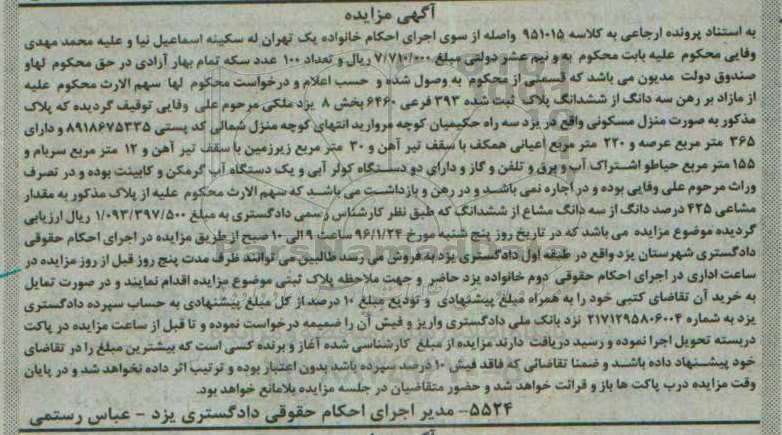 آگهی مزایده
به استناد پرونده ارجاعی به کلاسه ۹۵۱۰۱۵ واصله از سوی اجرای احکام خانواده یک تهران له سکینه اسماعیل نیا و علیه محمد مهدی
وفایی محکوم علیه بابت محکوم به و نیم عشر دولتی مبلغ ۷/۷۱۰/۰۰۰ ریال و تعداد ۱۰۰ عدد سکه تمام بهار آزادی در حق محکوم لهاو
صندوق دولت مدیون می باشد که قسمتی از محکوم به وصول شده و حسب اعلام و درخواست محکوم لها سهم الارث محکوم علیه
از مازاد بر رهن سه دانگ از ششدانگ پلاک ثبت شده ۳۹۳ فرعی ۶۴۶۰ بخش ۸ یزد ملکی مرحوم علی وفایی توقیف گردیده که پلاک
مذکور به صورت منزل مسکونی واقع در یزد سه راه حکیمیان کوچه مروارید انتهای کوچه منزل شمالی کد پستی ۸۹۱۸۶۷۵۳۳۵ و دارای
۳۶۵ متر مربع عرصه و ۲۲۰ متر مربع اعیانی همکف با سقف تیر آهن و ۳۰ متر مربع زیرزمین با سقف تیر آهن و ۱۲ متر مربع سرپام و
۱۵۵ متر مربع حیاطو اشتراک آب و برق و تلفن و گاز و دارای دو دستگاه کولر آبی و یک دستگاه آب گرمکن و کابینت بوده و در تصرف
وراث مرحوم علی وفایی بوده و در اجاره نمی باشد و در رهن و بازداشت می باشد که سهم الارث محکوم علیه از پلاک مذکور به مقدار
مشاعی ۴۲۵ درصد دانگ از سه دانگ مشاع از ششدانگ که طبق نظر کارشناس رسمی دادگستری به مبلغ ۱/۰۹۳/۳۹۷/۵۰۰ ریال ارزیابی
گردیده موضوع مزایده می باشد که در تاریخ روز پنج شنبه مورخ ۹۶/۱/۲۴ ساعت ۹ الی ۱۰ صبح از طریق مزایده در اجرای احکام حقوقی
دادگستری شهرستان یزد واقع در طبقه اول دادگستری یزد به فروش می رسد طالبین می توانند ظرف مدت پنج روز قبل از روز مزایده در
ساعت اداری در اجرای احکام حقوقی دوم خانواده یزد حاضر و جهت ملاحظه پلاک ثبتی موضوع مزایده اقدام نمایند و در صورت تمایل
به خرید آن تقاضای کتبی خود را به همراه مبلغ پیشنهادی و تودیع مبلغ ۱۰ درصد از کل مبلغ پیشنهادی به حساب سپرده دادگستری
یزد به شماره ۲۱۷۱۲۹۵۸۰۶۰۰۴ نزد بانک ملی دادگستری واریز و فیش آن را ضمیمه درخواست نموده و تا قبل از ساعت مزایده در پاکت
دربسته تحویل اجرا نموده و رسید دریافت دارند مزایده از مبلغ کارشناسی شده آغاز و برنده کسی است که بیشترین مبلغ را در تقاضای
خود پیشنهاد داده باشند و ضمنا تقاضائی که فاقد فیش ۱۰ درصد سپرده باشد بدون اعتبار بوده و ترتیب اثر داده نخواهد شد و در پایان
وقت مزایده درب پاکت ها باز و قرائت خواهد شد و حضور متقاضیان در جلسه مزایده بلامانع خواهد بود.
۵۵۲۴- مدیر اجرای احکام حقوقی دادگستری یزد - عباس رستمی